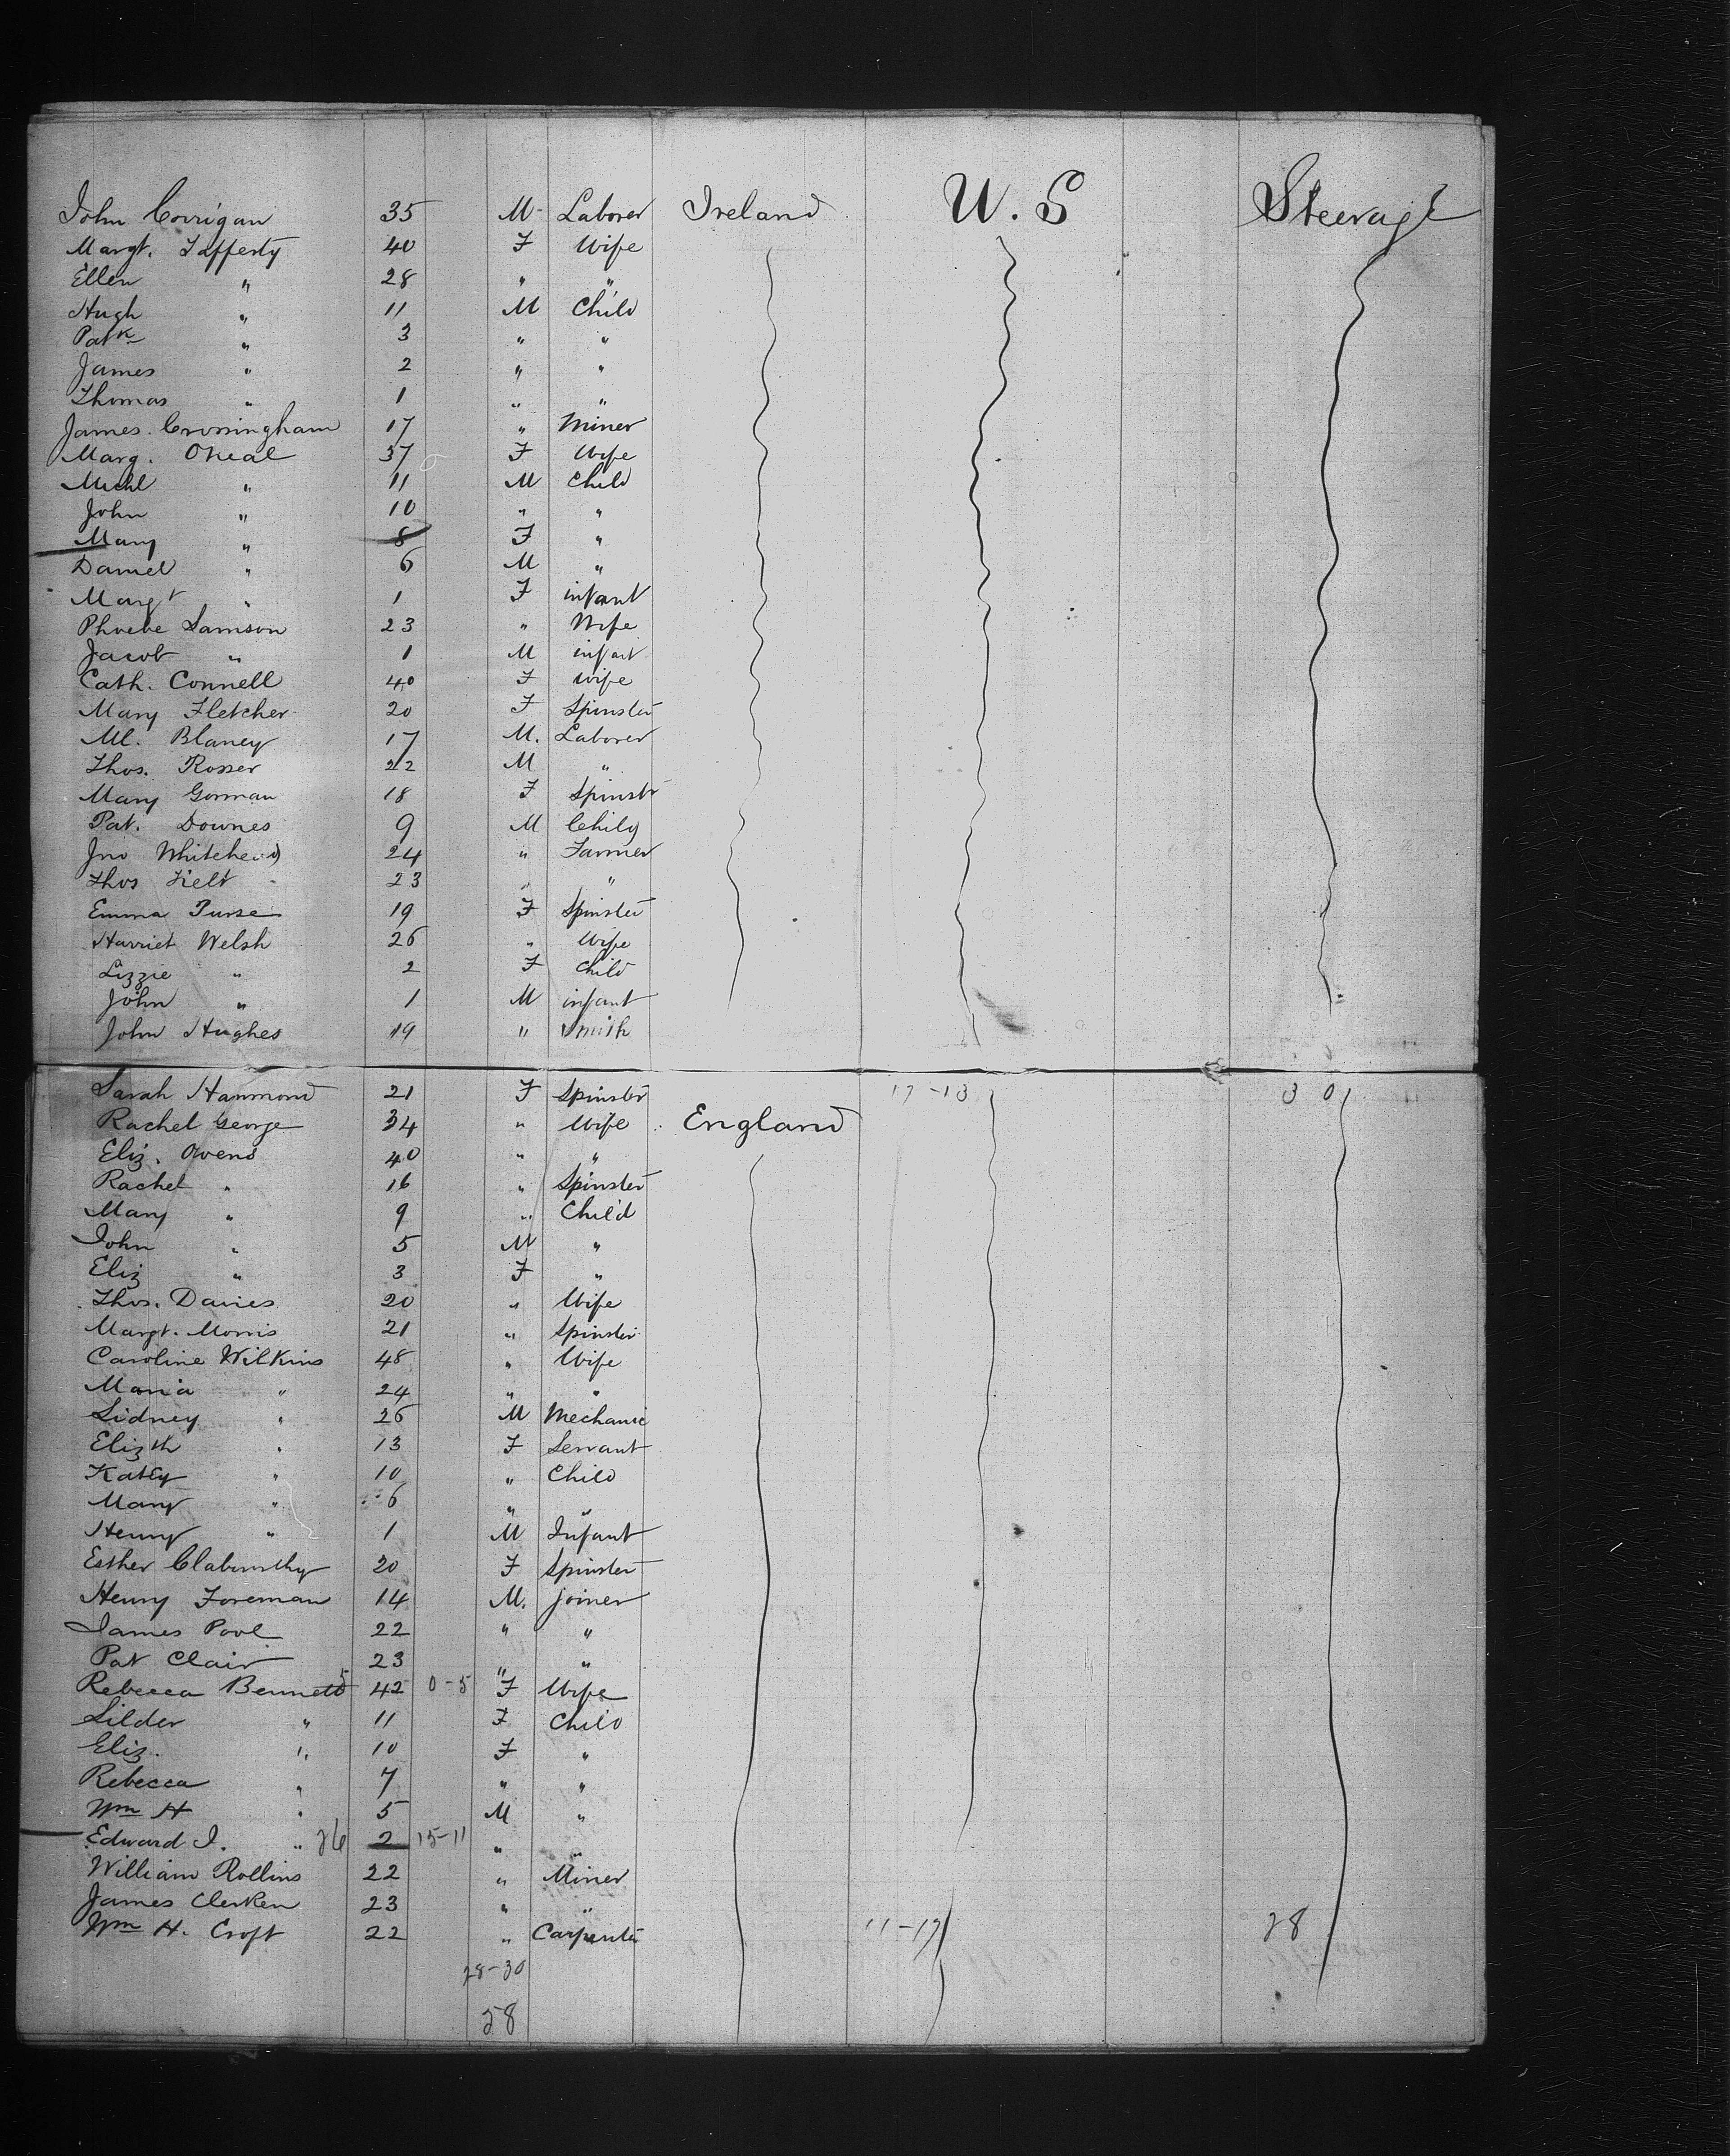 John Corrigan 35 M Laborer Ireland U.S Steerage
Margt. Lafferty 40 F Wife
Ellen " 28 " "
Hugh " 11 M Child
Patk " 3 " "
James " 2 " "
Thomas " 1 " "
James Crossingham 17 " Miner
Marg. ONeal 37 F Wife
Michl " 11 M Child
John " 10 " "
Mary " 8 F "
Daniel " 6 M "
Margt " 1 F infant
Phoebe Samson 23 " Wife
Jacob " 1 M infant
Cath. Connell 40 F Wife
Mary Fletcher 20 F Spinster
Ml. Blaney 17 M. Laborer
Thos. Rosser 22 M "
Mary Gorman 18 F Spinstr
Pat. Downes 9 M Child
Jno Whitehead 24 " Farmer
Thos 23 " "
Emma Purse 19 F Spinster
Harriet Welsh 26 " Wife
Lizzie " 2 F Child
John " 1 M infant
John Hughes 19 " Smith
Sarah Hammond 21 F Spinster 17-13 30
Rachel George 34 " Wife England
Eliz. Owens 40 " "
Rachel " 16 " Spinster
Mary " 9 " Child
John " 5 M "
Eliz " 3 F "
Thos. Davies 20 " Wife
Margt. Morris 21 " Spinster
Caroline Wilkins 48 " Wife
Maria " 24 " "
Sidney " 26 M Mechanic
Elizth " 13 F Servant
Katey " 10 " Child
Mary " 6 " "
Henry " 1 M Infant
Esther Clatworthy 20 F Spinster
Henry Foreman 14 M. Joiner
James Pool 22 " "
Pat Clair 23 " "
Rebecca Bennett 5 42 0-5 F Wife
Silder " 11 F Child
Eliz. " 10 F "
Rebecca " 7 " "
Wm H " 5 M "
Edward J. " 26 2 15-11 " "
William Rollins 22 " Miner
James Clerken 23 " "
Wm H. Croft 22 " Carpenter 11-17 28
28-30
58